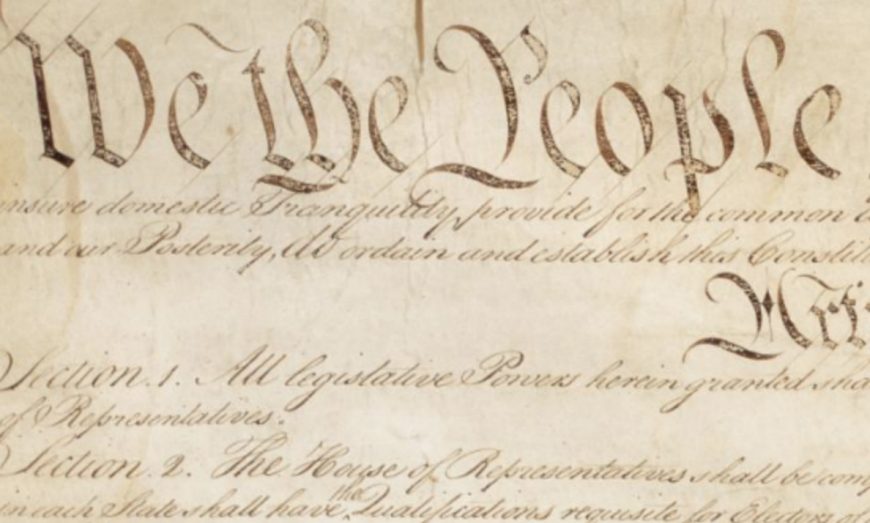 We the People
insure domestic Tranquility, provide for the common
and our Posterity, do ordain and establish this Constit
Arti
Section. 1. All legislative Powers herein granted sha
of Representatives.
Section. 2. The House of Representatives shall be comp
in each State shall have the Qualifications requisite for Electors of